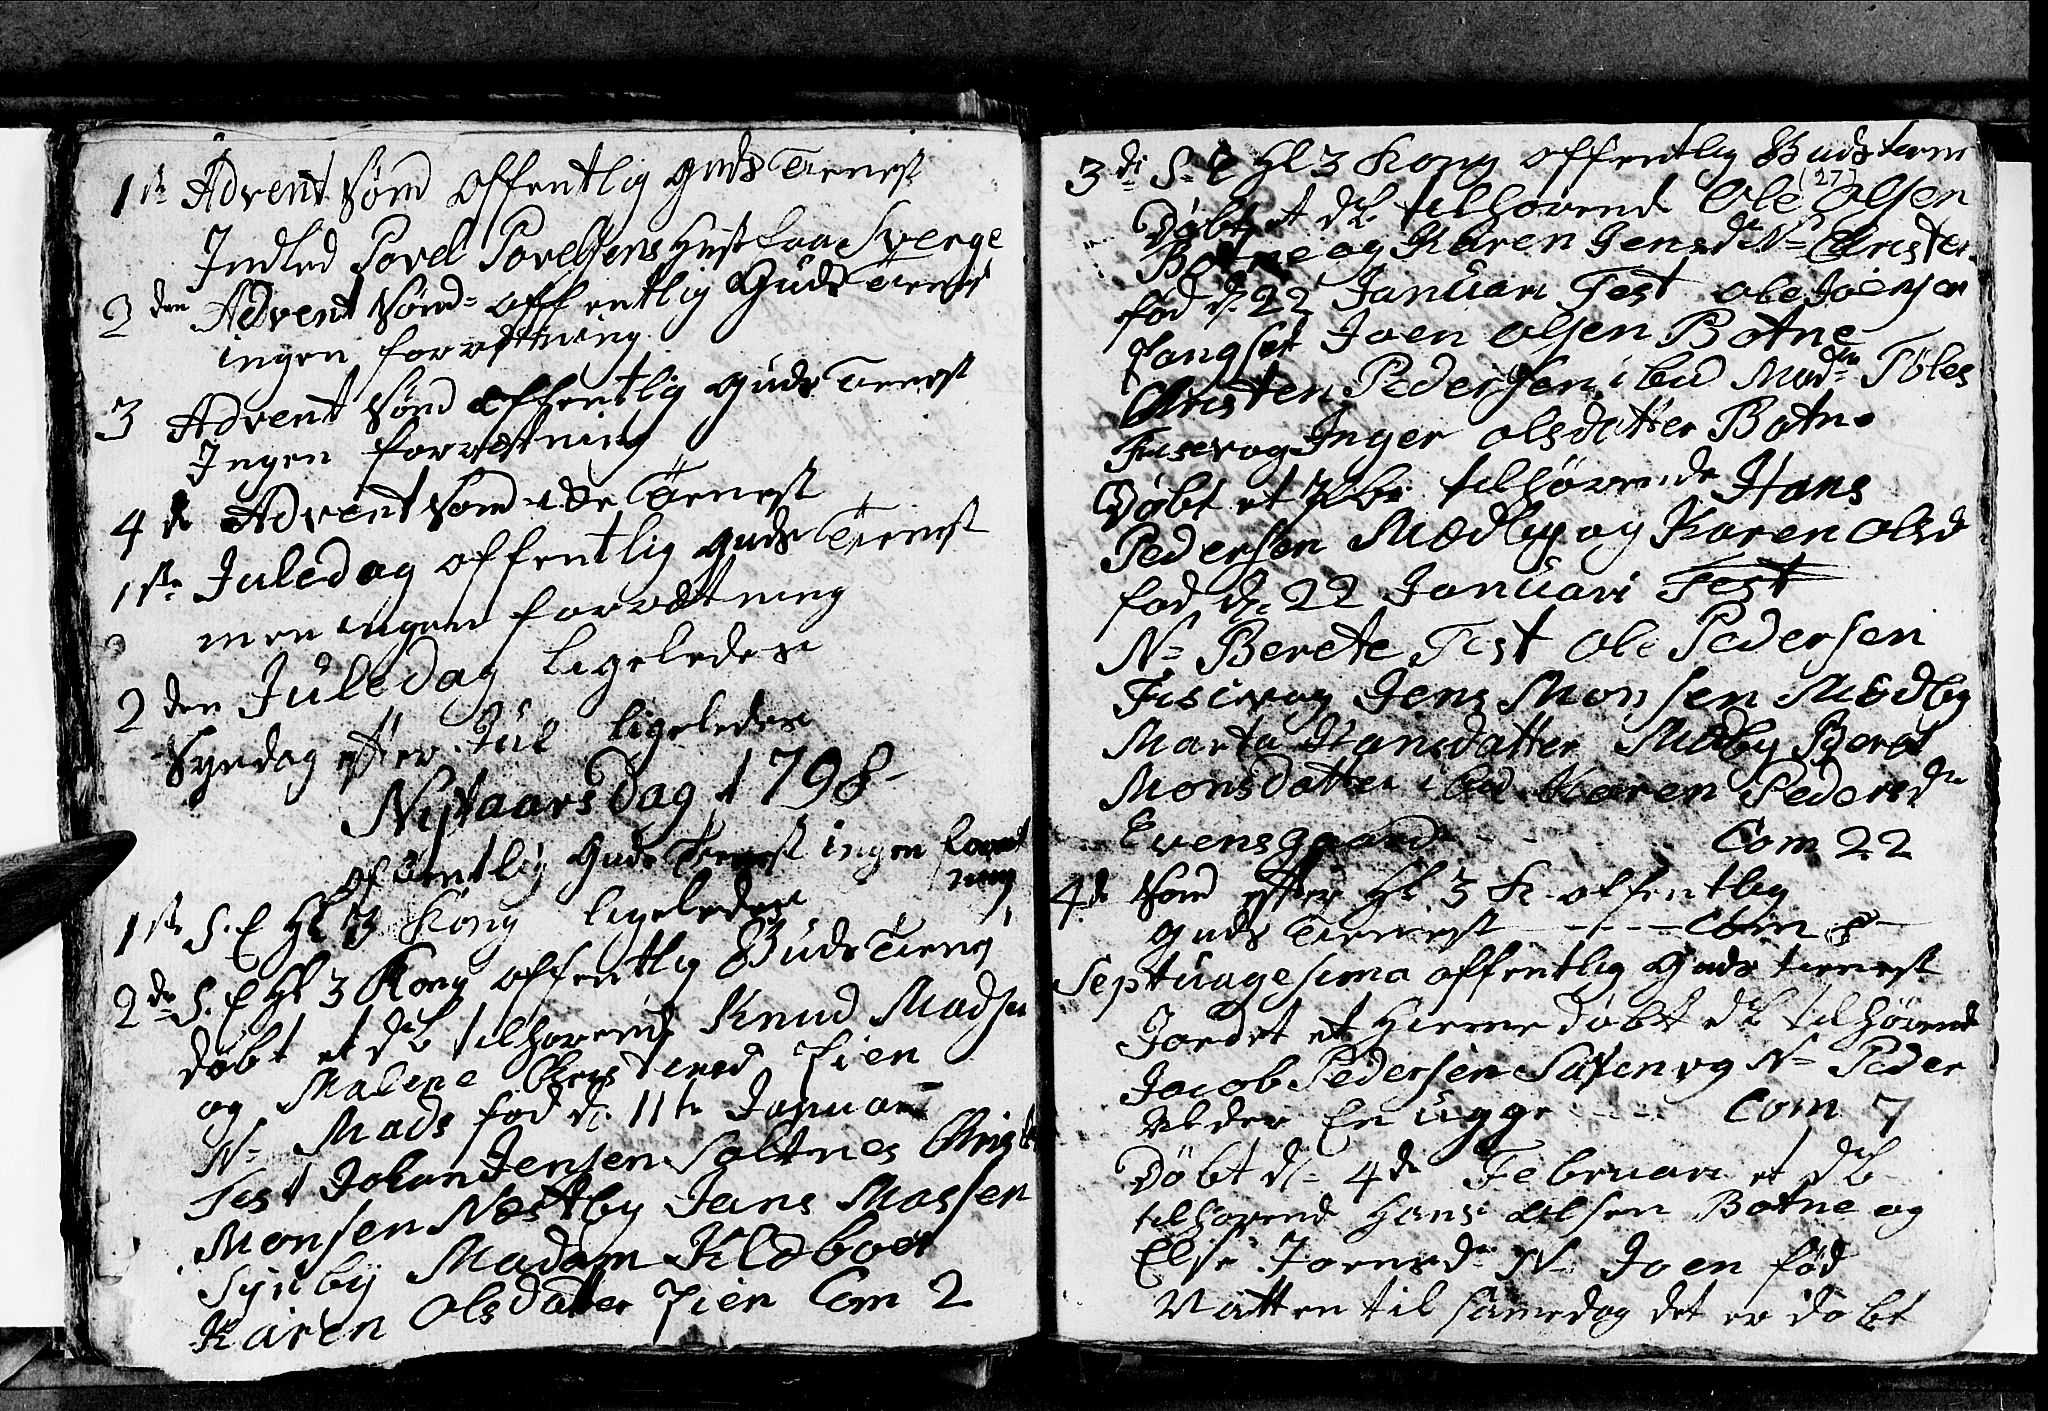 1ste Advent Sønd offentlig Guds Tienest
Indled Povel Povelsens Hust fra Sverge
2den Advent Sønd= offentlig Guds Tienest
ingen forretning
3 Advent Sønd offentlig Guds Tienest
Ingen forretning
4de Advent Sønd Tienest
1ste Juledag offentlig Guds Tienest
men ingen forretning
2den Juledag ligeleden
Syndag efter Jul ligeleden
Nytaars Dag 1798
offentlig Guds Tienest ingen forret
ning
1ste S. E Hl 3 Kong ligeleden
2den S. E Hl 3 Kong offentlig Guds Tienest
døbt et db tilhørende Knud Madsen
og Malene Zien
N= Mads fød d. 11te Januari
Test Johan Jensen Saltnes
Monsen Nestby Jans Massen
Synby Madam Kildboe
Karen Olsdatter Zien Com 2
3de S= E Hl 3 Kong offentlig Guds tienest
(27)
Døbt et db tilhørende Ole Olsen
Botne og Karen Jensd N= Christen
fød d. 22 Januari Test Ole Joensen
Joen Olsen Botne
Christen Pedersen ibid Madm Töles
Fisevog Inger Olsdatter Botne
Døbt et tilhørende Hans
Pedersen Mædby og Karen Olsd
fød d. 22 Januari Test
N= Berete Test Ole Pedersen
Fisevog Jens Monsen Mædby
Marta Hansdatter Mædby Beret
Monsdatter ibid Karen Pedersdr
Evensgaard - - - Com 22
4de Sønd efter Hl 3 K offentlig
Guds Tienest - - - Com 8
Septuagesima offentlig Guds tienest
Jordet et Hieme døbt db tilhørende
Jacob Pedersen Saxen og N= Peder
Alder En ugge - - - Com 7
Døbt d= 4de Februari et db
tilhørende Hans Olsen Botne og
Else Joensdr N= Joen fød
Natten til samedag det er døbt